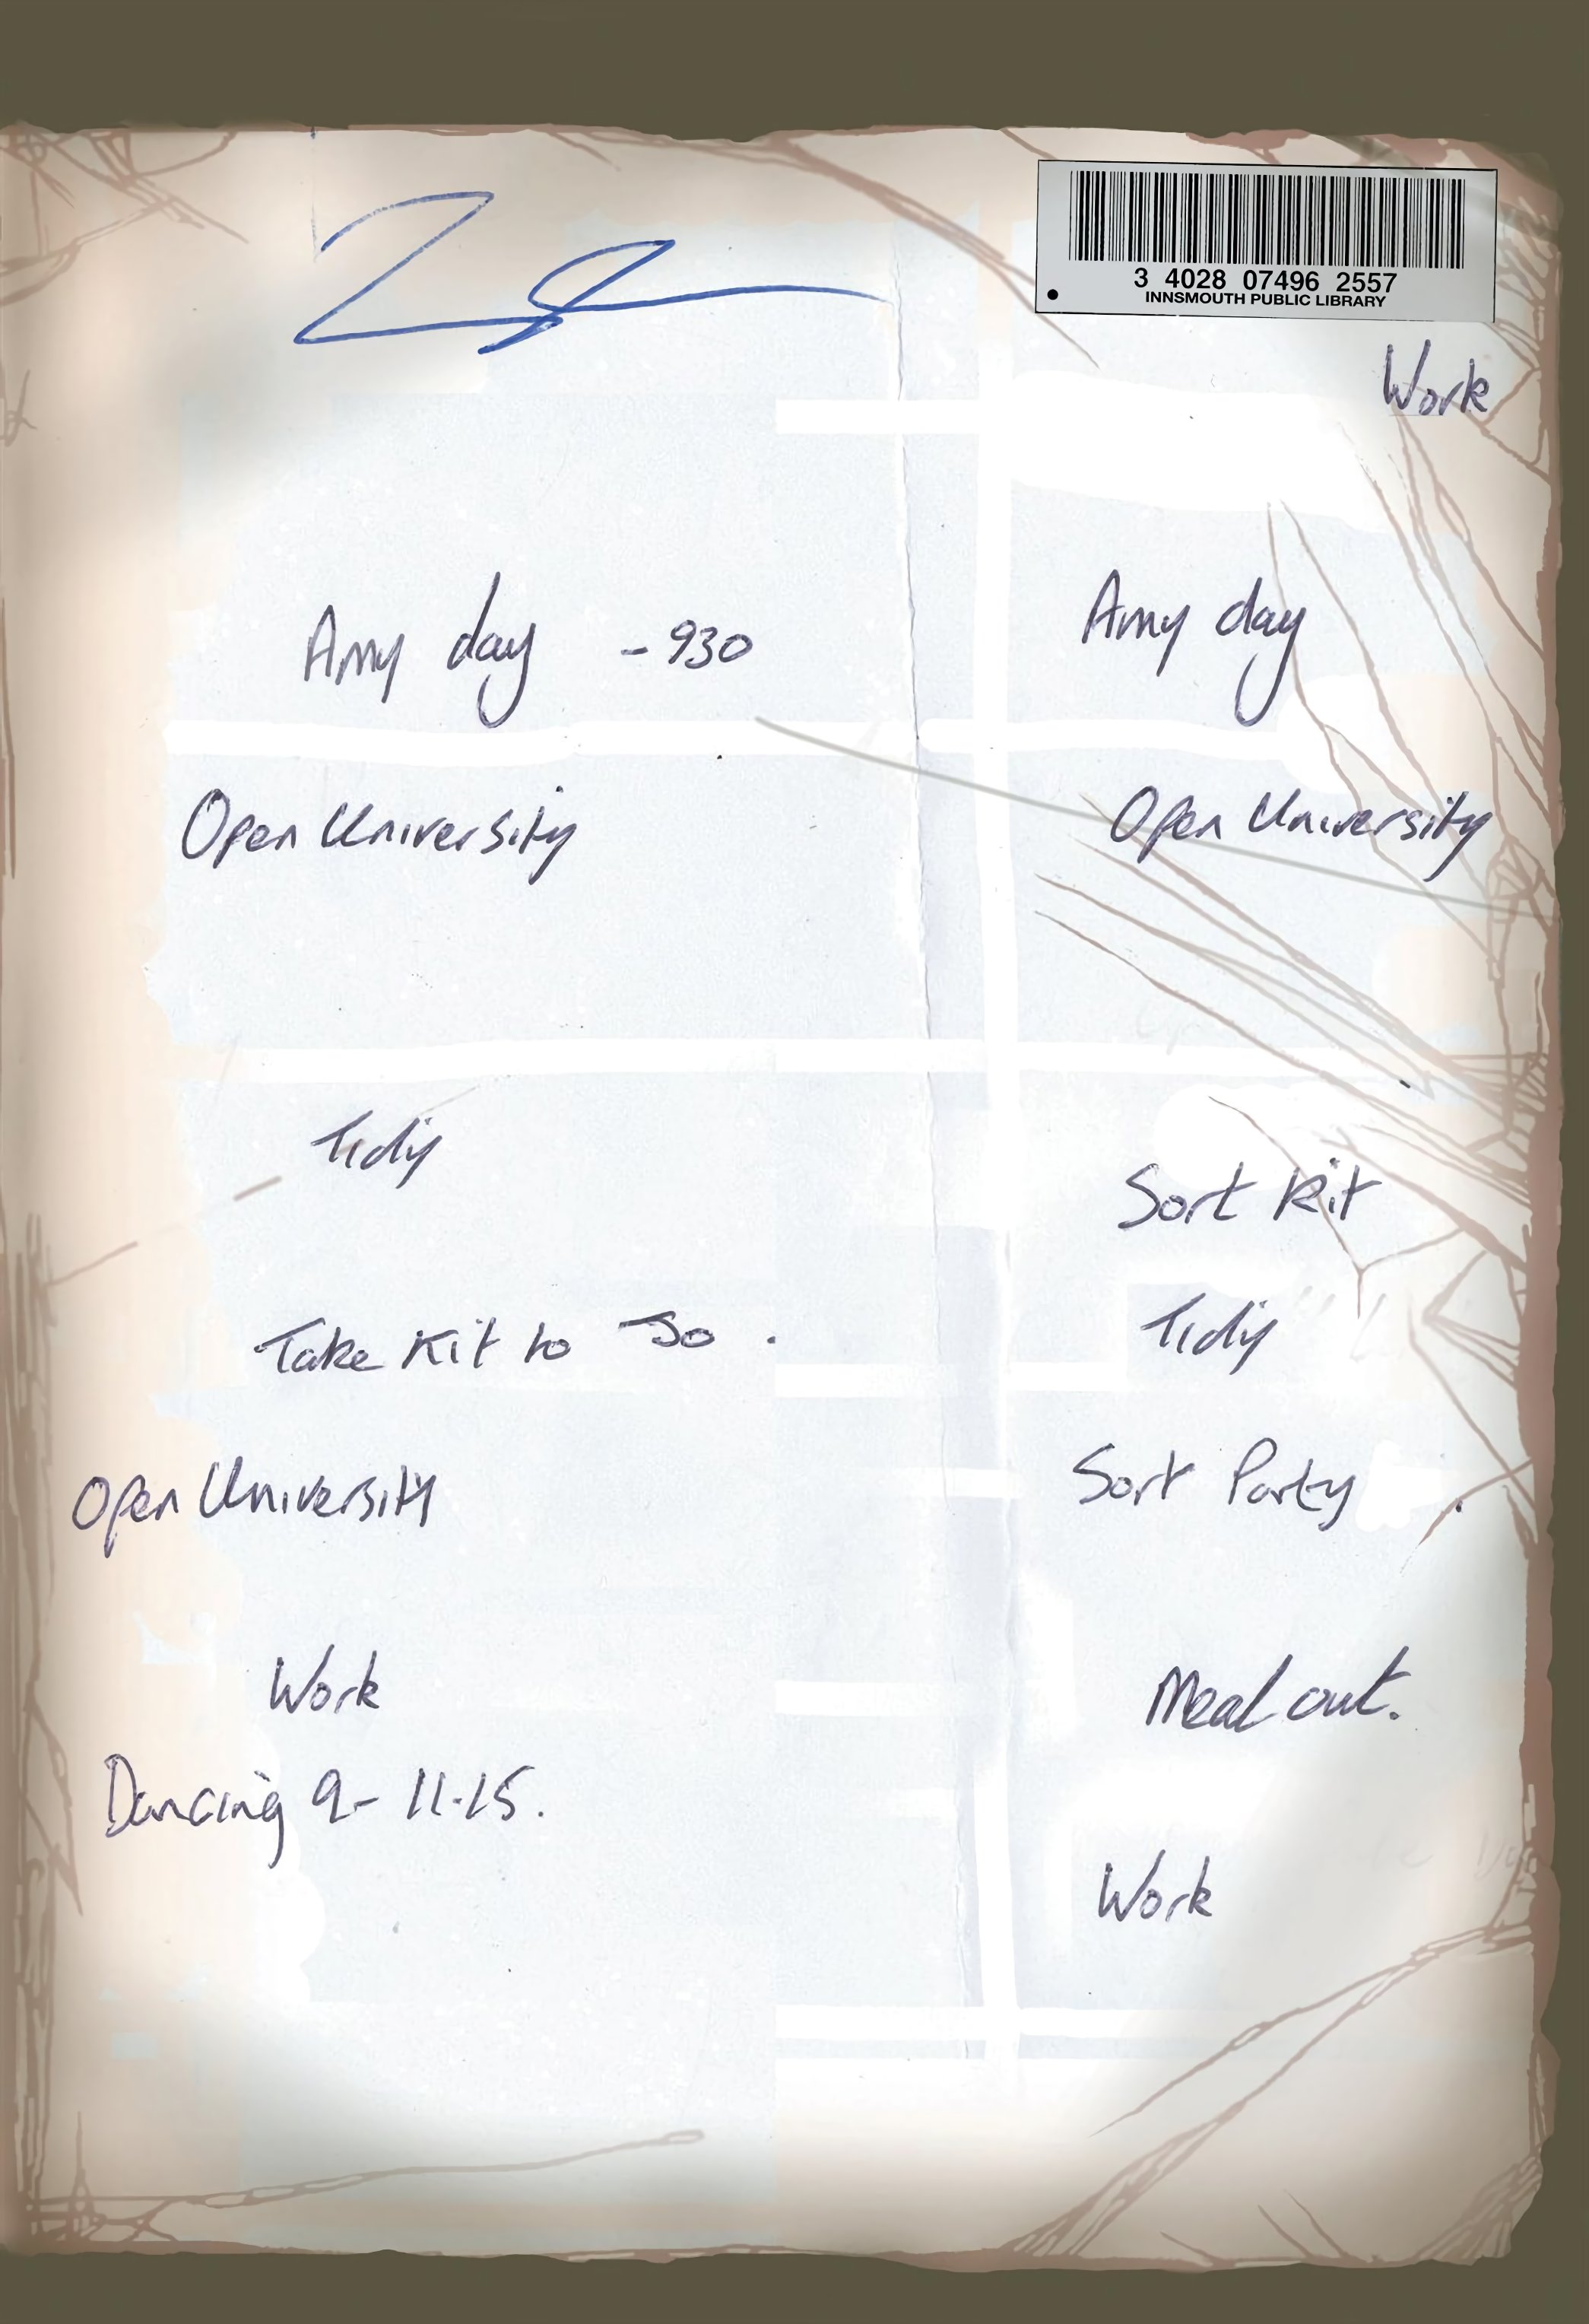 3 4028 07496 2557
INNSMOUTH PUBLIC LIBRARY
Work
Amy day - 930
Open University
Tidy
Take Kit to Jo .
Open University
Work
Dancing 9- 11.15.
Amy day
Open University
Sort Kit
Tidy
Sort Party .
Meal out.
Work